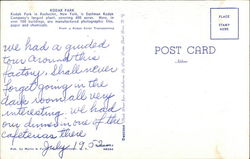 KODAK PARK
Kodak Park in Rochester, New York, is Eastman Kodak
Company's largest plant, covering 400 acres. Here, in
over 100 buildings, are manufactured photographic film,
paper and chemicals.
From a Kodak Color Transparency
we had a guided
tour around this
factory. Shall never
forget going in the
dark room all very
interesting. we had
our dinner in one of the
cafeterias there
July 19,
POST CARD
Address